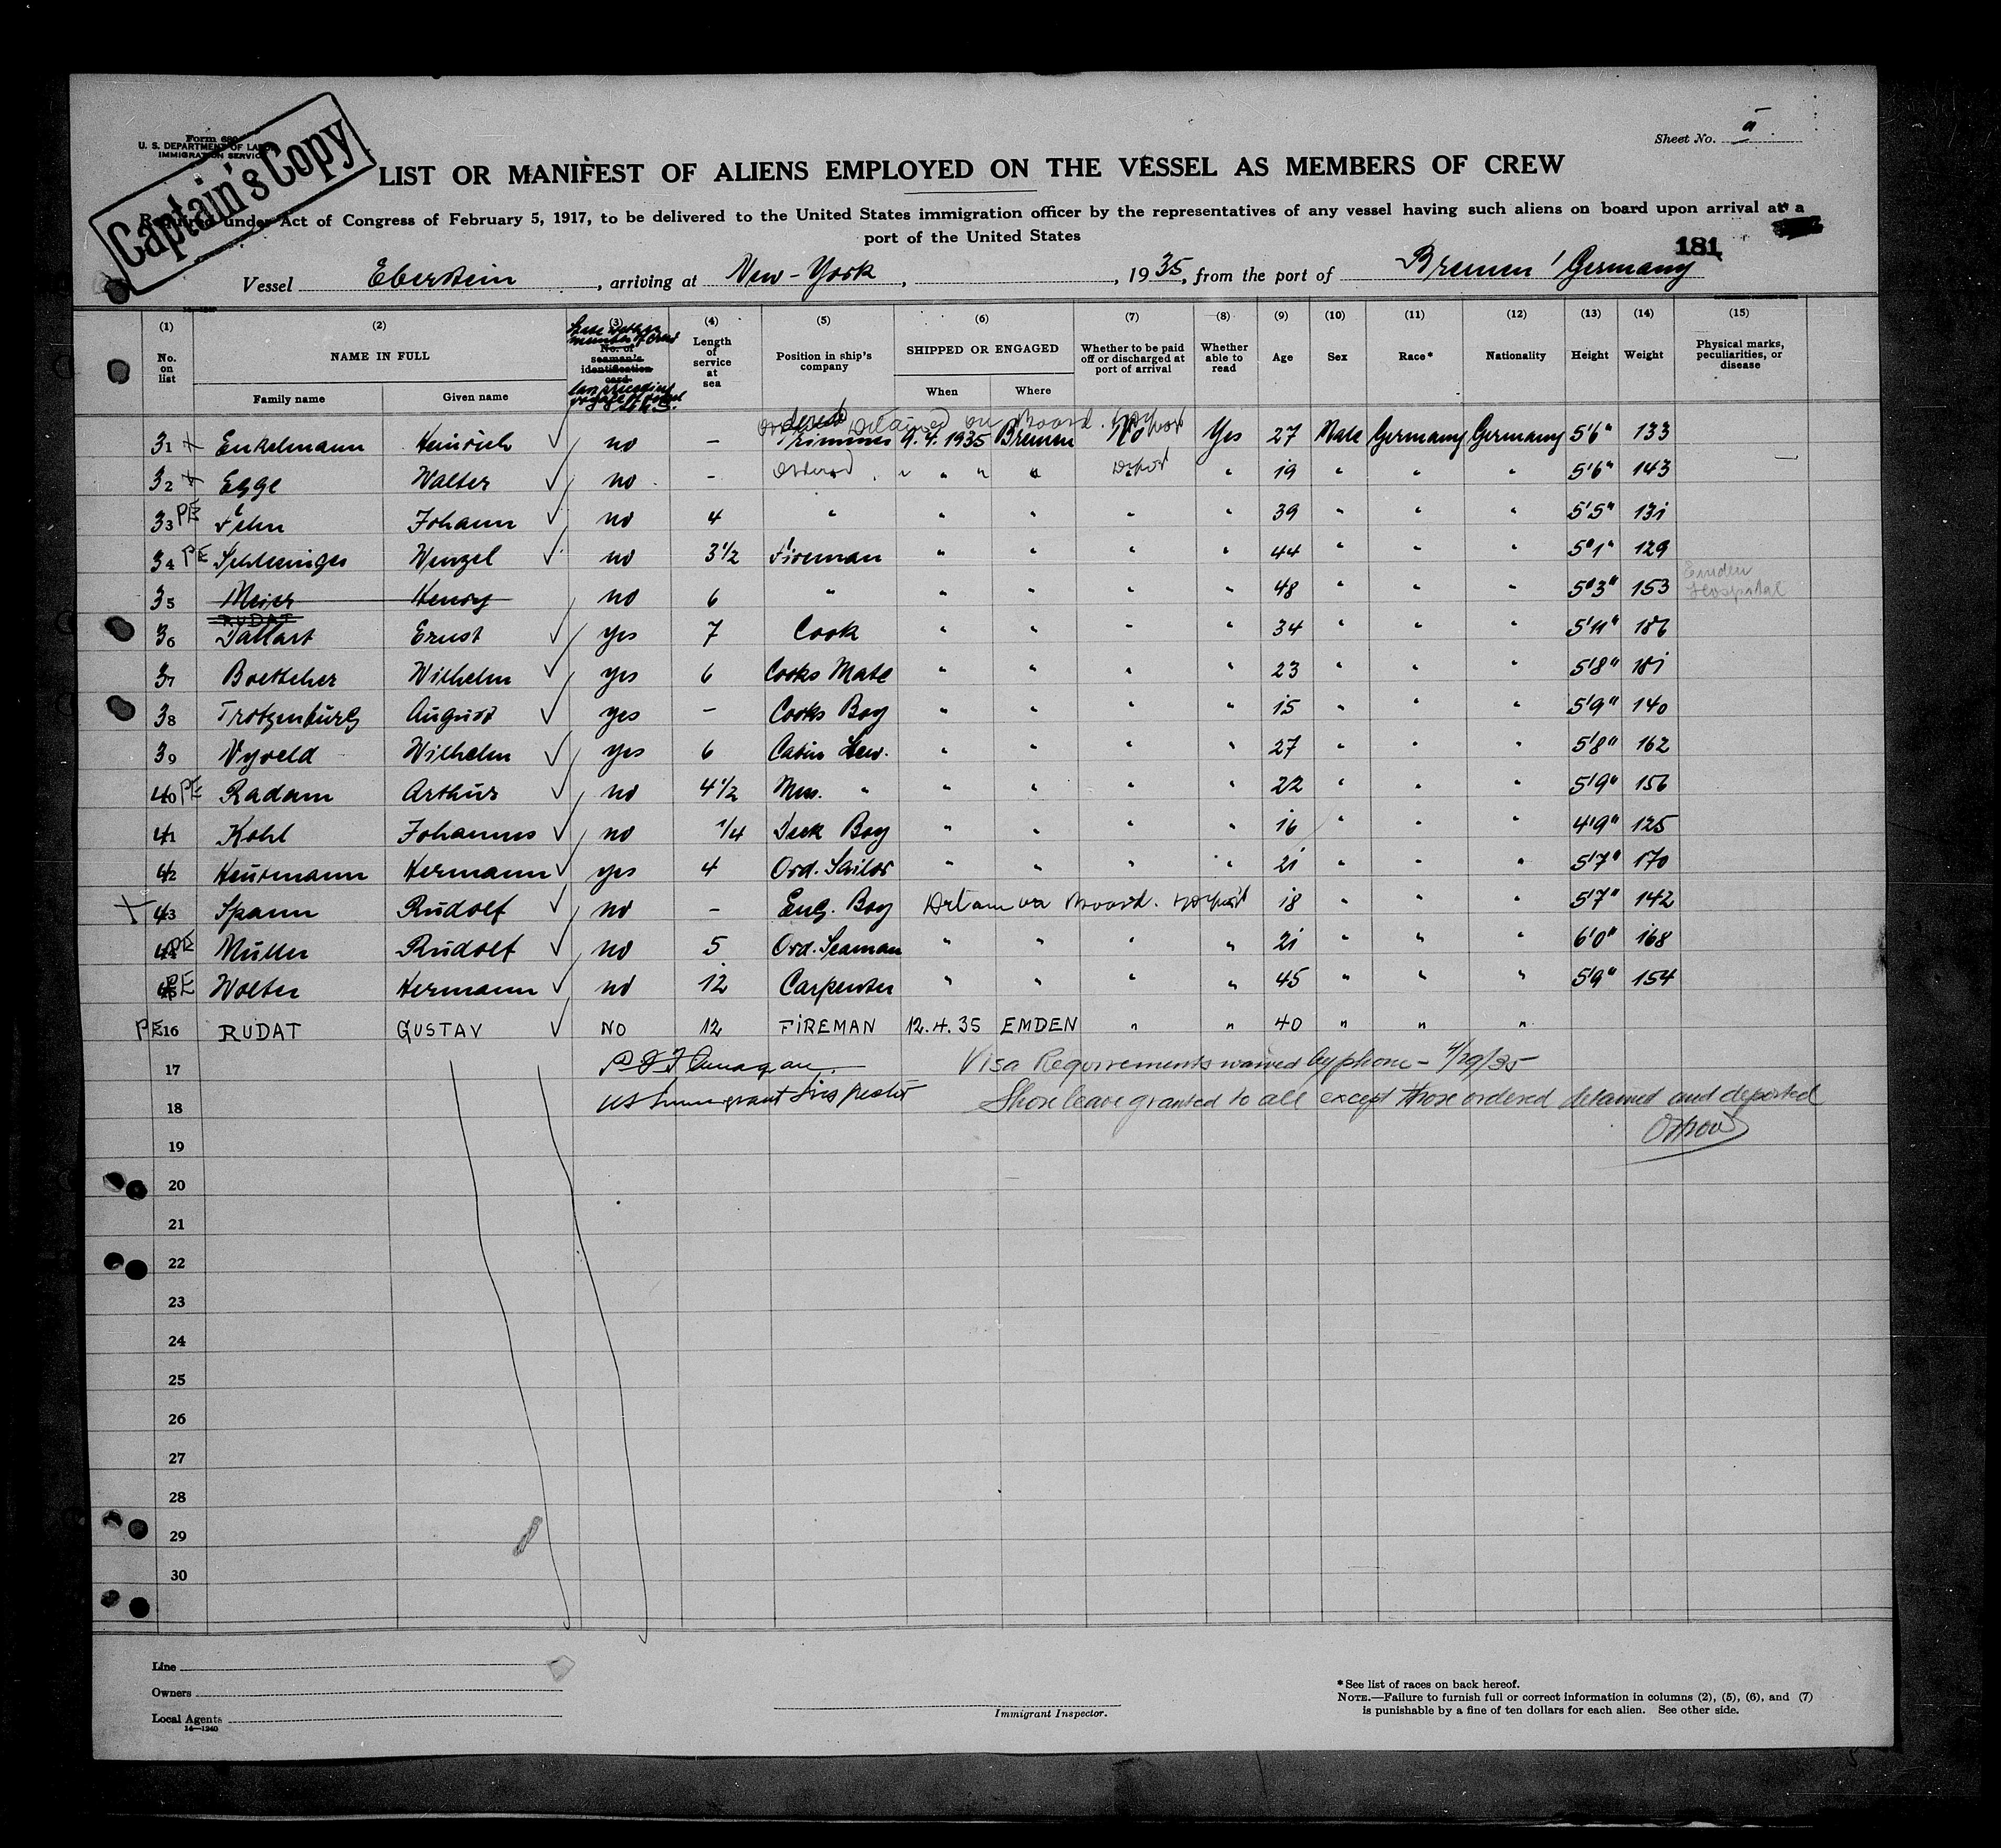 Form 680
U. S. DEPARTMENT OF LABOR
IMMIGRATION SERVICE
Captain's Copy
Sheet No.
LIST OR MANIFEST OF ALIENS EMPLOYED ON THE VESSEL AS MEMBERS OF CREW
Required under Act of Congress of February 5, 1917, to be delivered to the United States immigration officer by the representatives of any vessel having such aliens on board upon arrival at a
port of the United States
181
Vessel Eberstein, arriving at New-York, , 1935, from the port of Bremen / Germany
(1) (2) (3) (4) (5) (6) (7) (8) (9) (10) (11) (12) (13) (14) (15)
No. on list NAME IN FULL No. of seaman's identification card Length of service at sea Position in ship's company SHIPPED OR ENGAGED Whether to be paid off or discharged at port of arrival Whether able to read Age Sex Race* Nationality Height Weight Physical marks, peculiarities, or disease
Family name Given name When Where
ordered Detained on board.
31 x Enkelmann Heinrich ✓ no - Trimmer 9.4.1935 Bremen No Yes 27 Male Germany Germany 5'6" 133
32 x Egge Walter ✓ no - Ordered " " " " Depot " 19 " " " 5'6" 143
33 PE Fehn Johann ✓ no 4 " " " " " 39 " " " 5'5" 131
34 PE Schleuniges Wenzel ✓ no 3 1/2 Fireman " " " " 44 " " " 5'1" 129
35 Meier Henry no 6 " " " " " 48 " " " 5'3" 153 Emden Hospital
RUDAT
36 Dallart Ernst ✓ yes 7 Cook " " " " 34 " " " 5'11" 186
37 Boettcher Wilhelm ✓ yes 6 Cooks Mate " " " " 23 " " " 5'8" 181
38 Trotzenburg August ✓ yes - Cooks Boy " " " " 15 " " " 5'9" 140
39 Vyveld Wilhelm ✓ yes 6 Cabin Stew. " " " " 27 " " " 5'8" 162
40 PE Radam Arthur ✓ no 4 1/2 Mess. " " " " " 22 " " " 5'9" 156
41 Kohl Johannes ✓ no 1/4 Deck Boy " " " " 16 " " " 4'9" 125
42 Heuermann Hermann ✓ yes 4 Ord. Sailor " " " " 21 " " " 5'7" 170
x 43 Spann Rudolf ✓ no - Eng. Boy Detain on board. 18 " " " 5'7" 142
44 PE Müller Rudolf ✓ no 5 Ord. Seaman " " " " 21 " " " 6'0" 168
45 PE Wolter Hermann ✓ no 12 Carpenter " " " " 45 " " " 5'9" 154
PE 16 RUDAT GUSTAV ✓ NO 12 FIREMAN 12.4.35 EMDEN " " 40 " " "
17 Visa Requirements waived by phone - 4/29/35
18 US Immigrant Inspector Shore leave granted to all except those ordered detained and deported
19
20
21
22
23
24
25
26
27
28
29
30
Line
Owners
Local Agents
14—1240
Immigrant Inspector.
*See list of races on back hereof.
NOTE.—Failure to furnish full or correct information in columns (2), (5), (6), and (7)
is punishable by a fine of ten dollars for each alien. See other side.
5